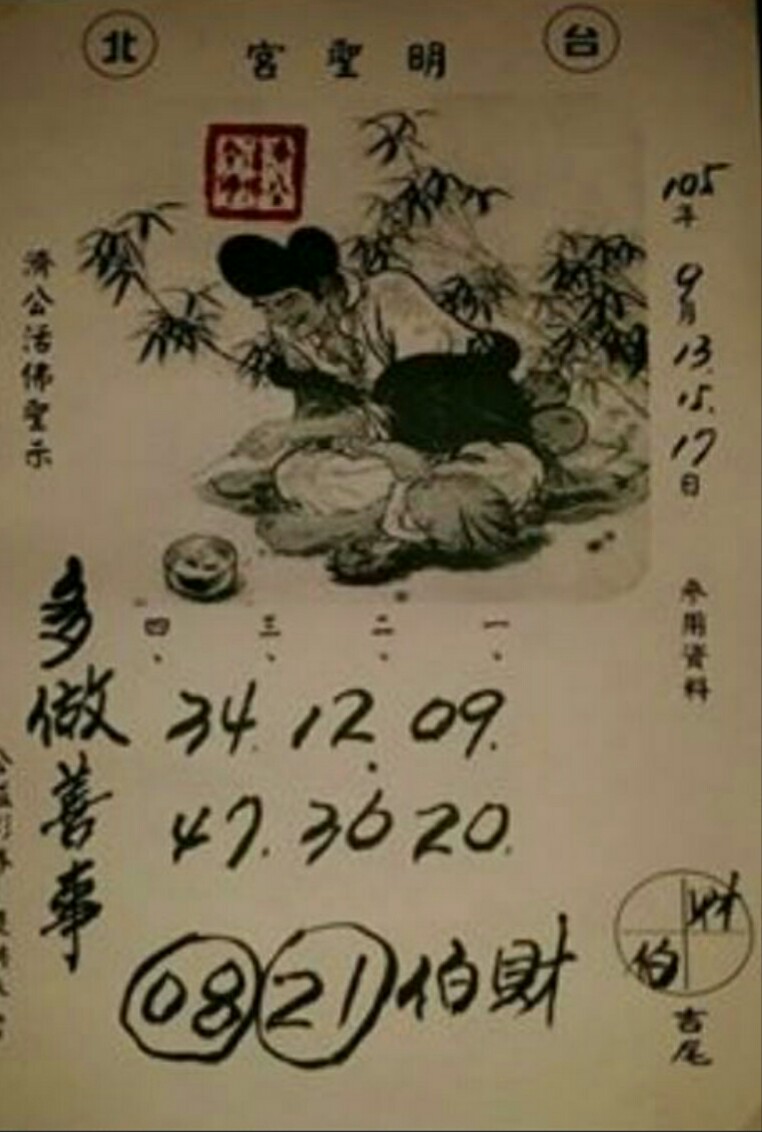 台北
明聖宮
105年9月13.15.17日
參用資料
濟公活佛聖示
一、二、三、四、
09. 12. 34.
20. 36 47.
伯財
21 08
多做善事
財
伯
吉尾